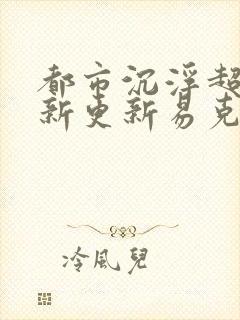 都市沉浮超
新更新易克
冷風兒